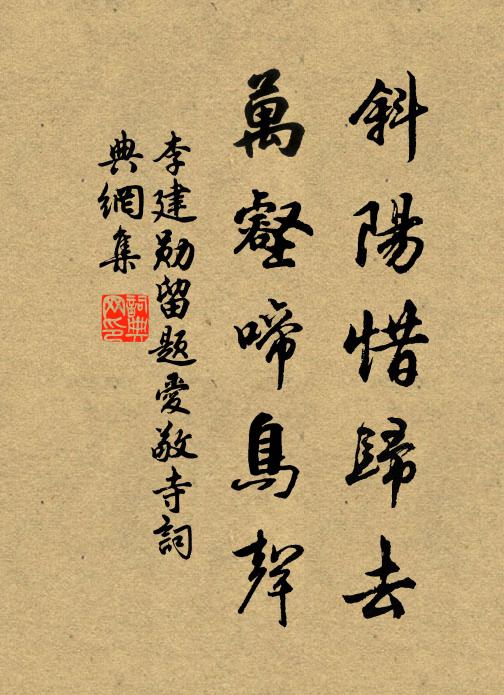 斜陽惜歸去
萬壑啼鳥聲
李建勛留題愛敬寺詞
典網集
詞典
网印